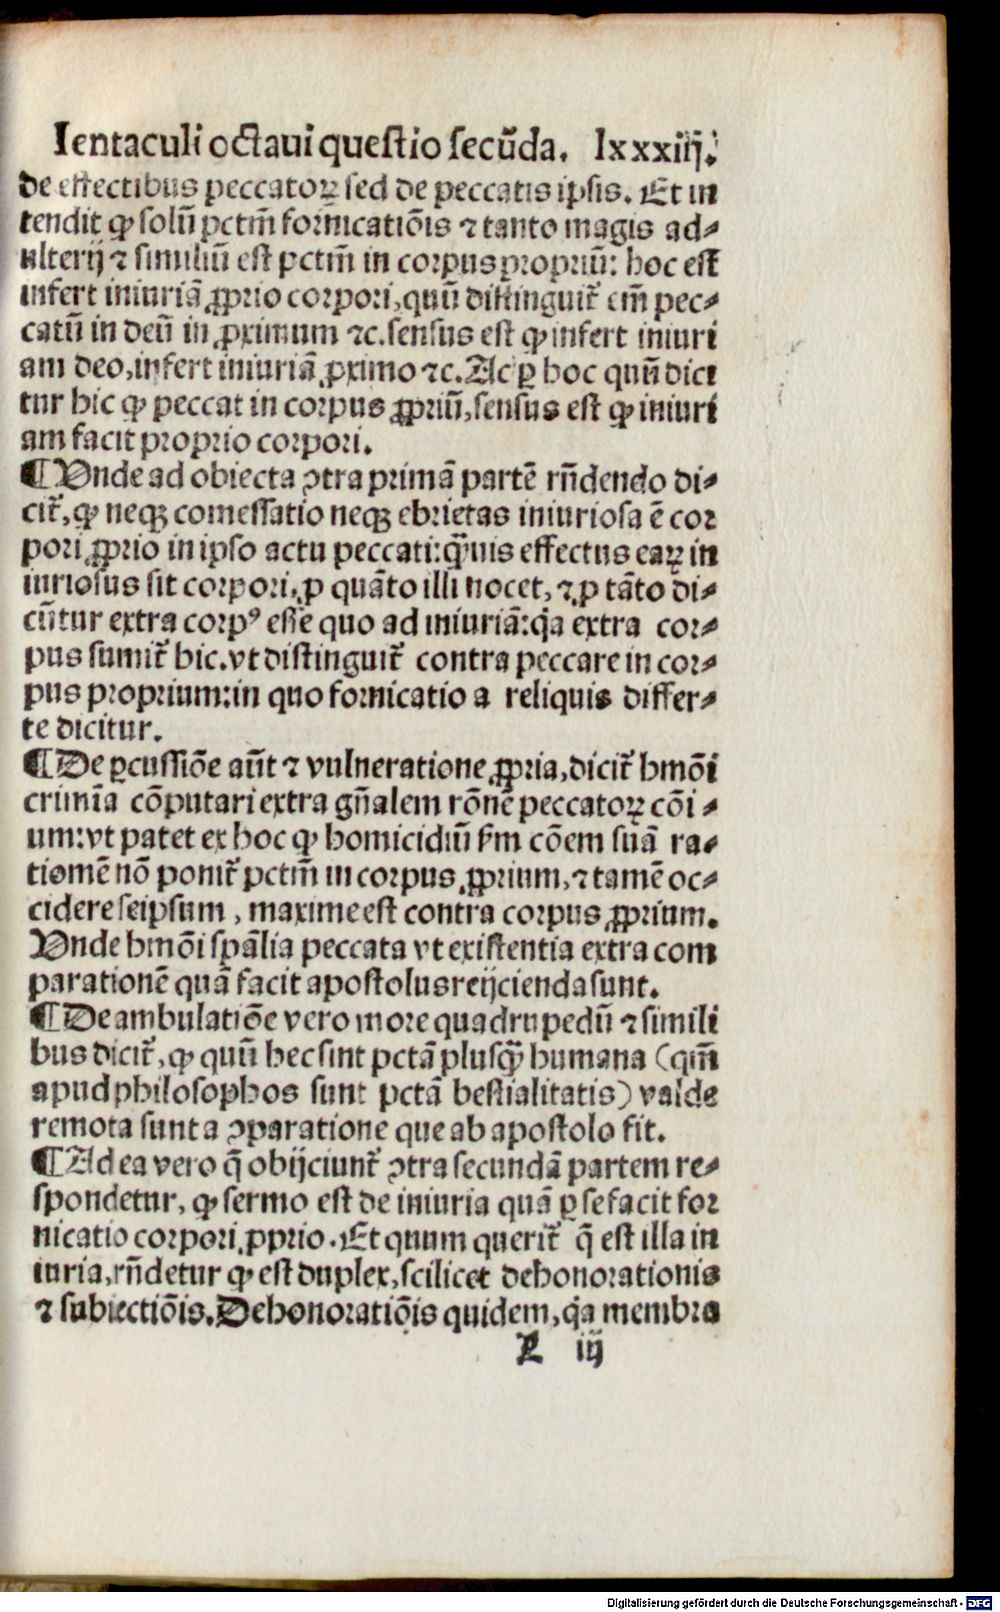 Ientaculi octaui questio secūda. lxxxiiij.
de effectibus peccatoꝝ sed de peccatis ipsis. Et in
tendit ꝙ solū pctm̄ fornicatiōis ⁊ tanto magis ad⸗
ulterij ⁊ similiū est pctm̄ in corpus propriū: hoc est
infert iniuriā ꝓprio corpori, quū distinguit᷑ em̄ pec⸗
catū in deū in ꝓximum ⁊c. sensus est ꝙ infert iniuri
am deo, infert iniuriā ꝓximo ⁊c. Ac ꝑ hoc quū dici
tur hic ꝙ peccat in corpus ꝓpriū, sensus est ꝙ iniuri
am facit proprio corpori.
¶ Vnde ad obiecta ꝯtra primā partē rn̄dendo di⸗
cit᷑, ꝙ neqꝫ comessatio neqꝫ ebrietas iniuriosa ē cor
pori ꝓprio in ipso actu peccati: q̄uis effectus eaꝝ in
iuriosus sit corpori, ꝓ quāto illi nocet, ⁊ ꝓ tāto di⸗
cūtur extra corpꝰ esse quo ad iniuriā: q̇a extra cor⸗
pus sumit᷑ hic. vt distinguit᷑ contra peccare in cor⸗
pus proprium: in quo fornicatio a reliquis differ⸗
te dicitur.
¶ De ꝑcussiōe aūt ⁊ vulneratione ꝓpria, dicit᷑ hmōi
crimīa cōputari extra gn̄alem rōnē peccatoꝝ cōi⸗
um: vt patet ex hoc ꝙ homicidiū ẜm cōem suā ra⸗
tionē nō ponit᷑ pctm̄ in corpus ꝓprium, ⁊ tamē oc⸗
cidere seipsum, maxime est contra corpus ꝓprium.
Vnde hmōi spālia peccata vt existentia extra com
parationē quā facit apostolus reijcienda sunt.
¶ De ambulatiōe vero more quadrupedū ⁊ simili
bus dicit᷑, ꝙ quū hec sint pctā plusq̄ humana (qm̄
apud philosophos sunt pctā bestialitatis) valde
remota sunt a ꝯparatione que ab apostolo fit.
¶ Ad ea vero q̄ obijciunt᷑ ꝯtra secundā partem re⸗
spondetur, ꝙ sermo est de iniuria quā ꝑ se facit for
nicatio corpori ꝓprio. Et quum querit᷑ q̄ est illa in
iuria, rn̄detur ꝙ est duplex, scilicet dehonorationis
⁊ subiectiōis. Dehonoratiōis quidem, q̇a membra
L iij
Digitalisierung gefördert durch die Deutsche Forschungsgemeinschaft - DFG